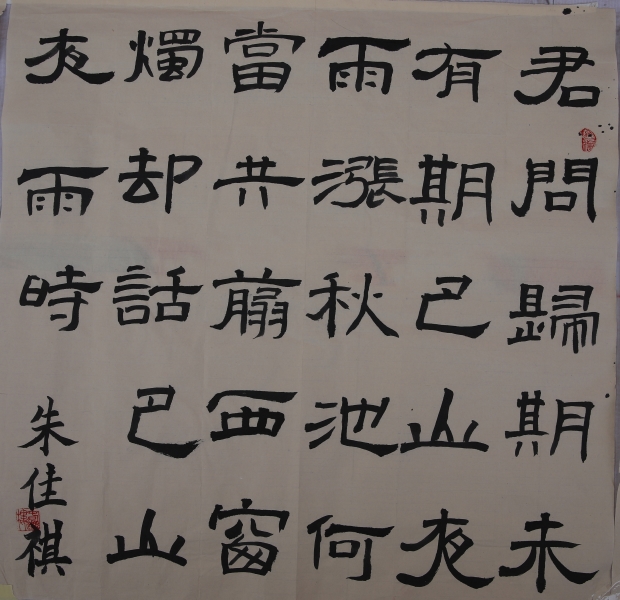 君問歸期未
有期巴山夜
雨漲秋池何
當共翦西窗
燭却話巴山
夜雨時
朱佳祺